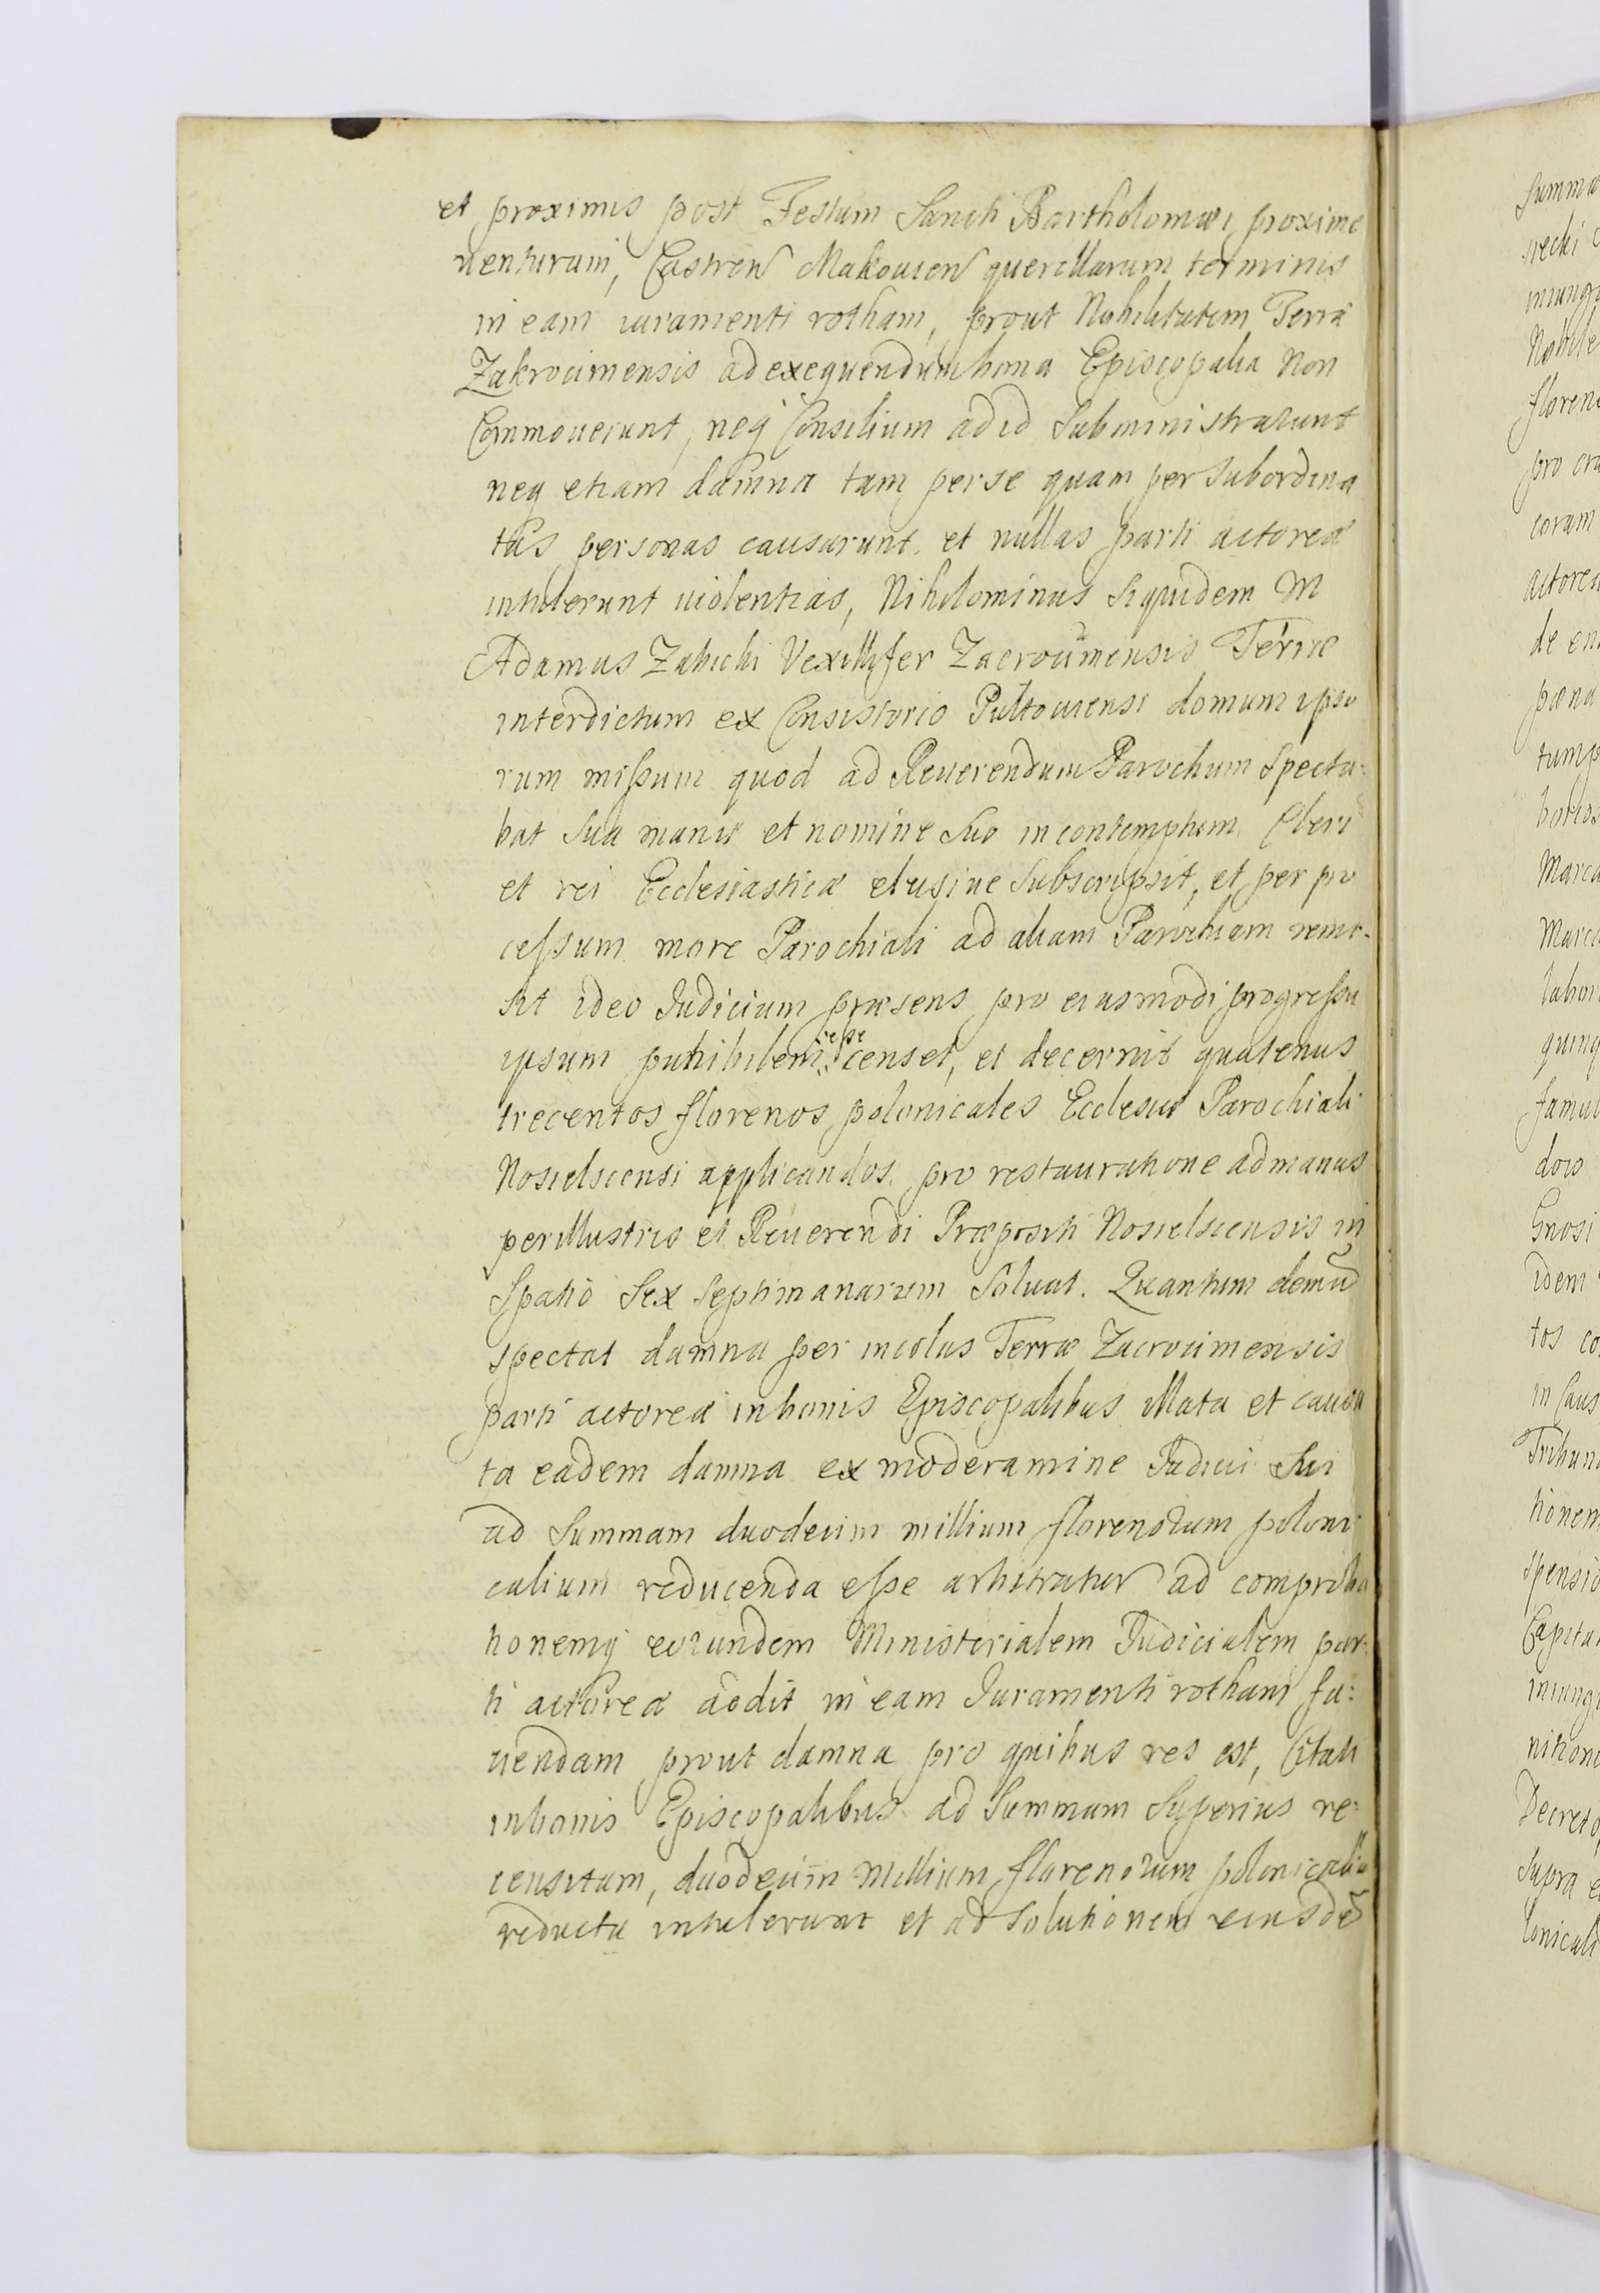 et proximis post Festum Sancti Bartholomæi proxime
venturum, Castren Makovien querellarum terminis
in eam iuramenti rotham, prout Nobilitatem Terræ
Zakrocimensis ad exequendum bona Episcopalia non
Commoverunt, neq Consilium ad id Subministrarunt
neq etiam damna tam per se quam per Subordina
tas personas causarunt. et nullas parti actoreæ
intulerunt violentias, Nihilominus Siquidem M
Adamus Zabicki Vexillifer Zacrocimensis Terræ
interdictum ex Consistorio Pultoviensi domum ipso
rum missum quod ad Reverendum Parochum Specta:
bat Sua manu et nomine Suo in contemptum Cleri
et rei Ecclesiasticæ elusive Subscripsit, et per pro
cessum more Parochiali ad aliam Parochiam remi-
sit ideo Iudicium præsens pro eiusmodi progressu
ipsum punibilem esse censet, et decernit quatenus
trecentos florenos polonicales Ecclesiæ Parochiali
Nosielscensi applicandos pro restauratione ad manus
perillustris et Reverendi Præpositi Nosielscensis in
Spatio Sex Septimanarum Solvat. Quantum demũ
spectat damna per incolas Terræ Zacrocimensis
parti actoreæ in bonis Episcopalibus illata et causa
ta eadem damna ex moderamine Iudicii Sui
ad Summam duodecim millium florenorum poloni
calium reducenda esse arbitratur ad comproba
tionemq eorundem Ministerialem Iudicialem par:
ti actoreæ addit in eam Iuramenti rotham fa:
vendam prout damna pro quibus res est, Citati
in bonis Episcopalibus ad Summam Superius re:
censitam, duodecim Millium florenorum polonicaliũ
reducta intulerunt et ad Solutionem eiusdẽ